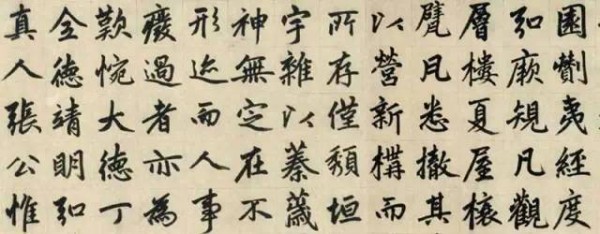 園劗夷經度
弘厥規凡觀
層樓夏屋榱
甓凡悉撤其
以營新構而
所存僅頹垣
宇雜以蓁薉
神無定在不
形迹而人事
癈過者亦為
歎惋大德丁
全德靖明弘
真人張公惟